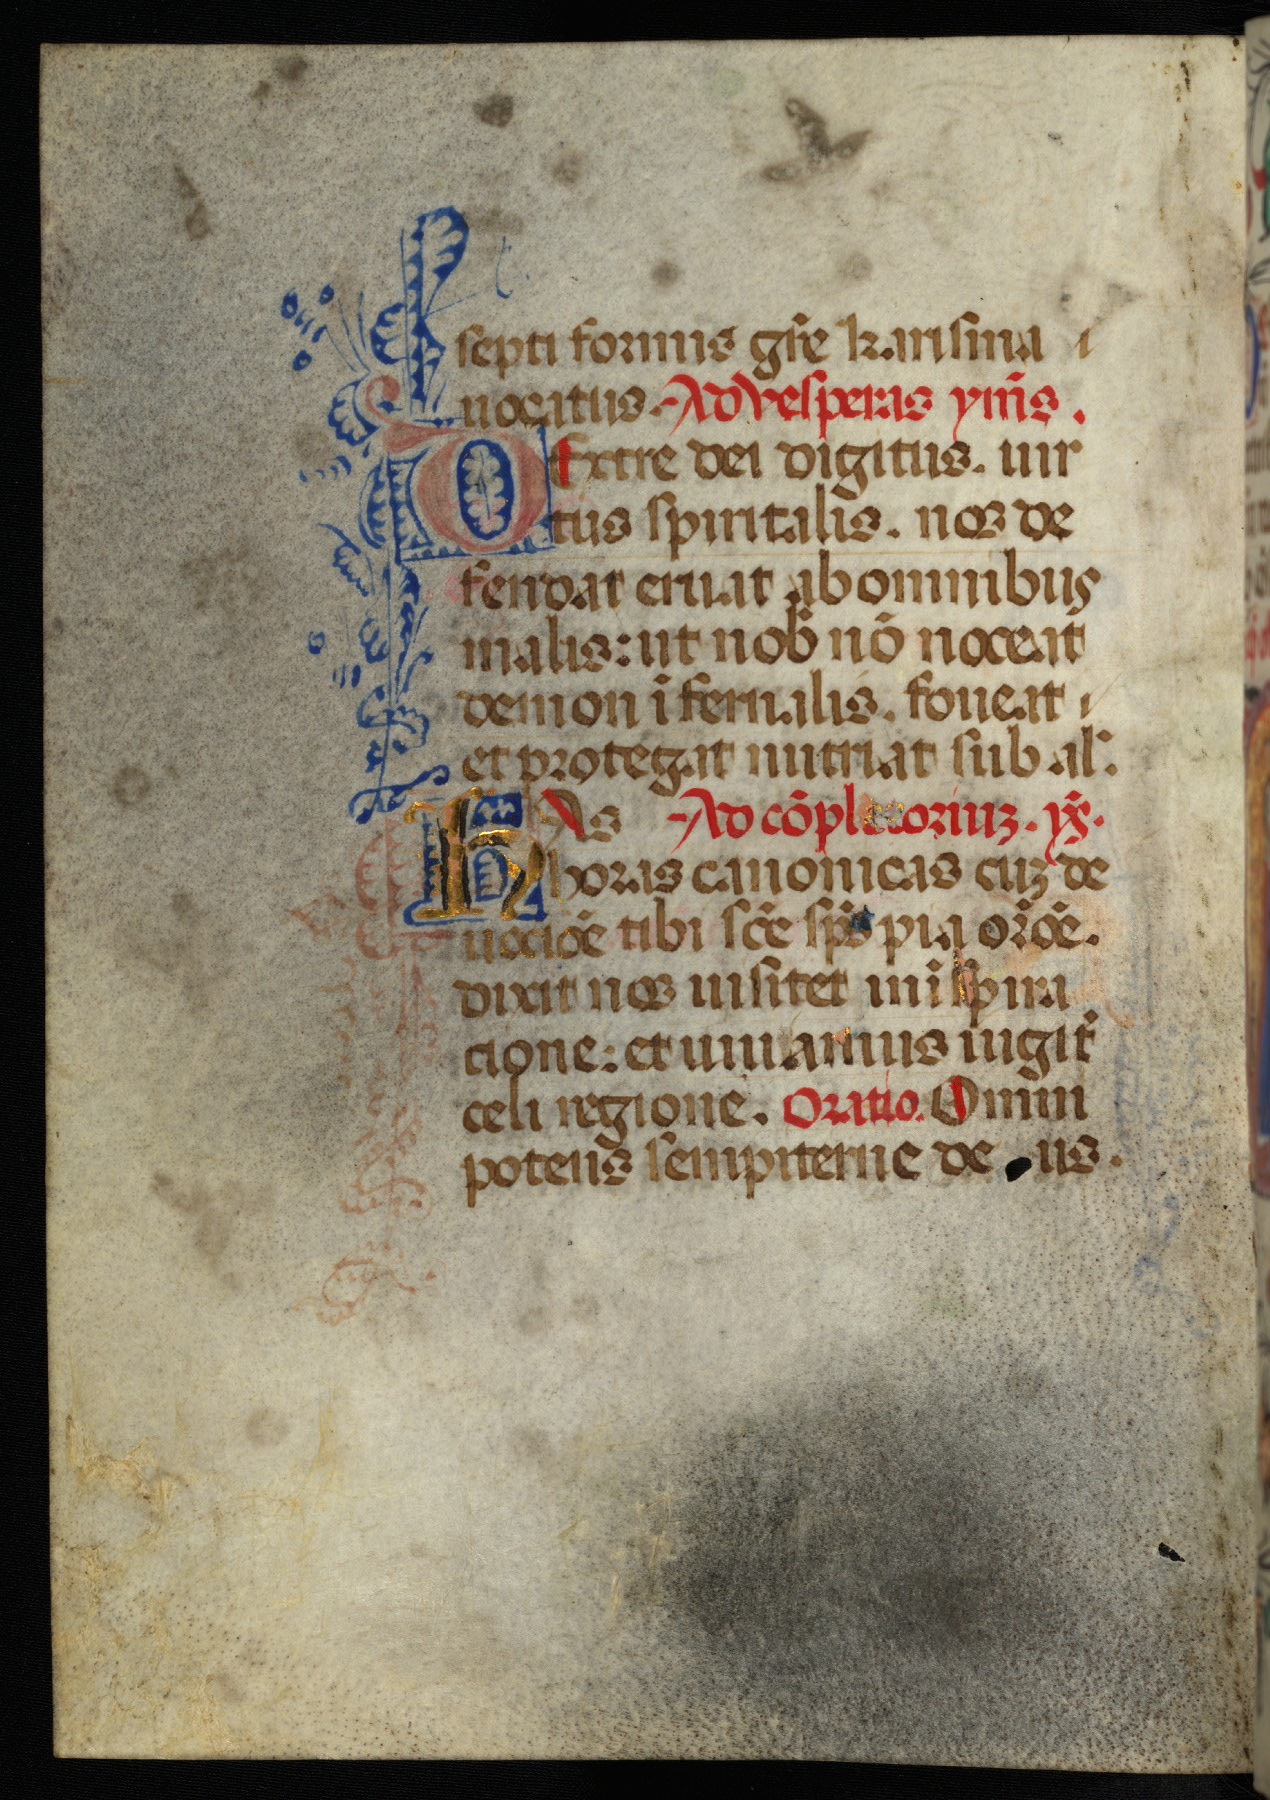 septi formis gr̃e karisma i
uocatus. Ad vesperas ym̃s.
Dextre dei digitus. uir
tus spiritalis. nos de
fendat eruat ab omnibus
malis: ut nob̃ nō noceat
demon ĩfernalis. foueat
et protegat nutriat sub al.
Has Ad cōpletorium. yr̃.
horas canonicas cuz de
uociōe tibi sc̃e sp̃s pia or̃oē.
dixit nos uisitet in ĩspira
cione: et uiuamus iugit̃
celi regione. Oratio. Omni
potens sempiterne de us.